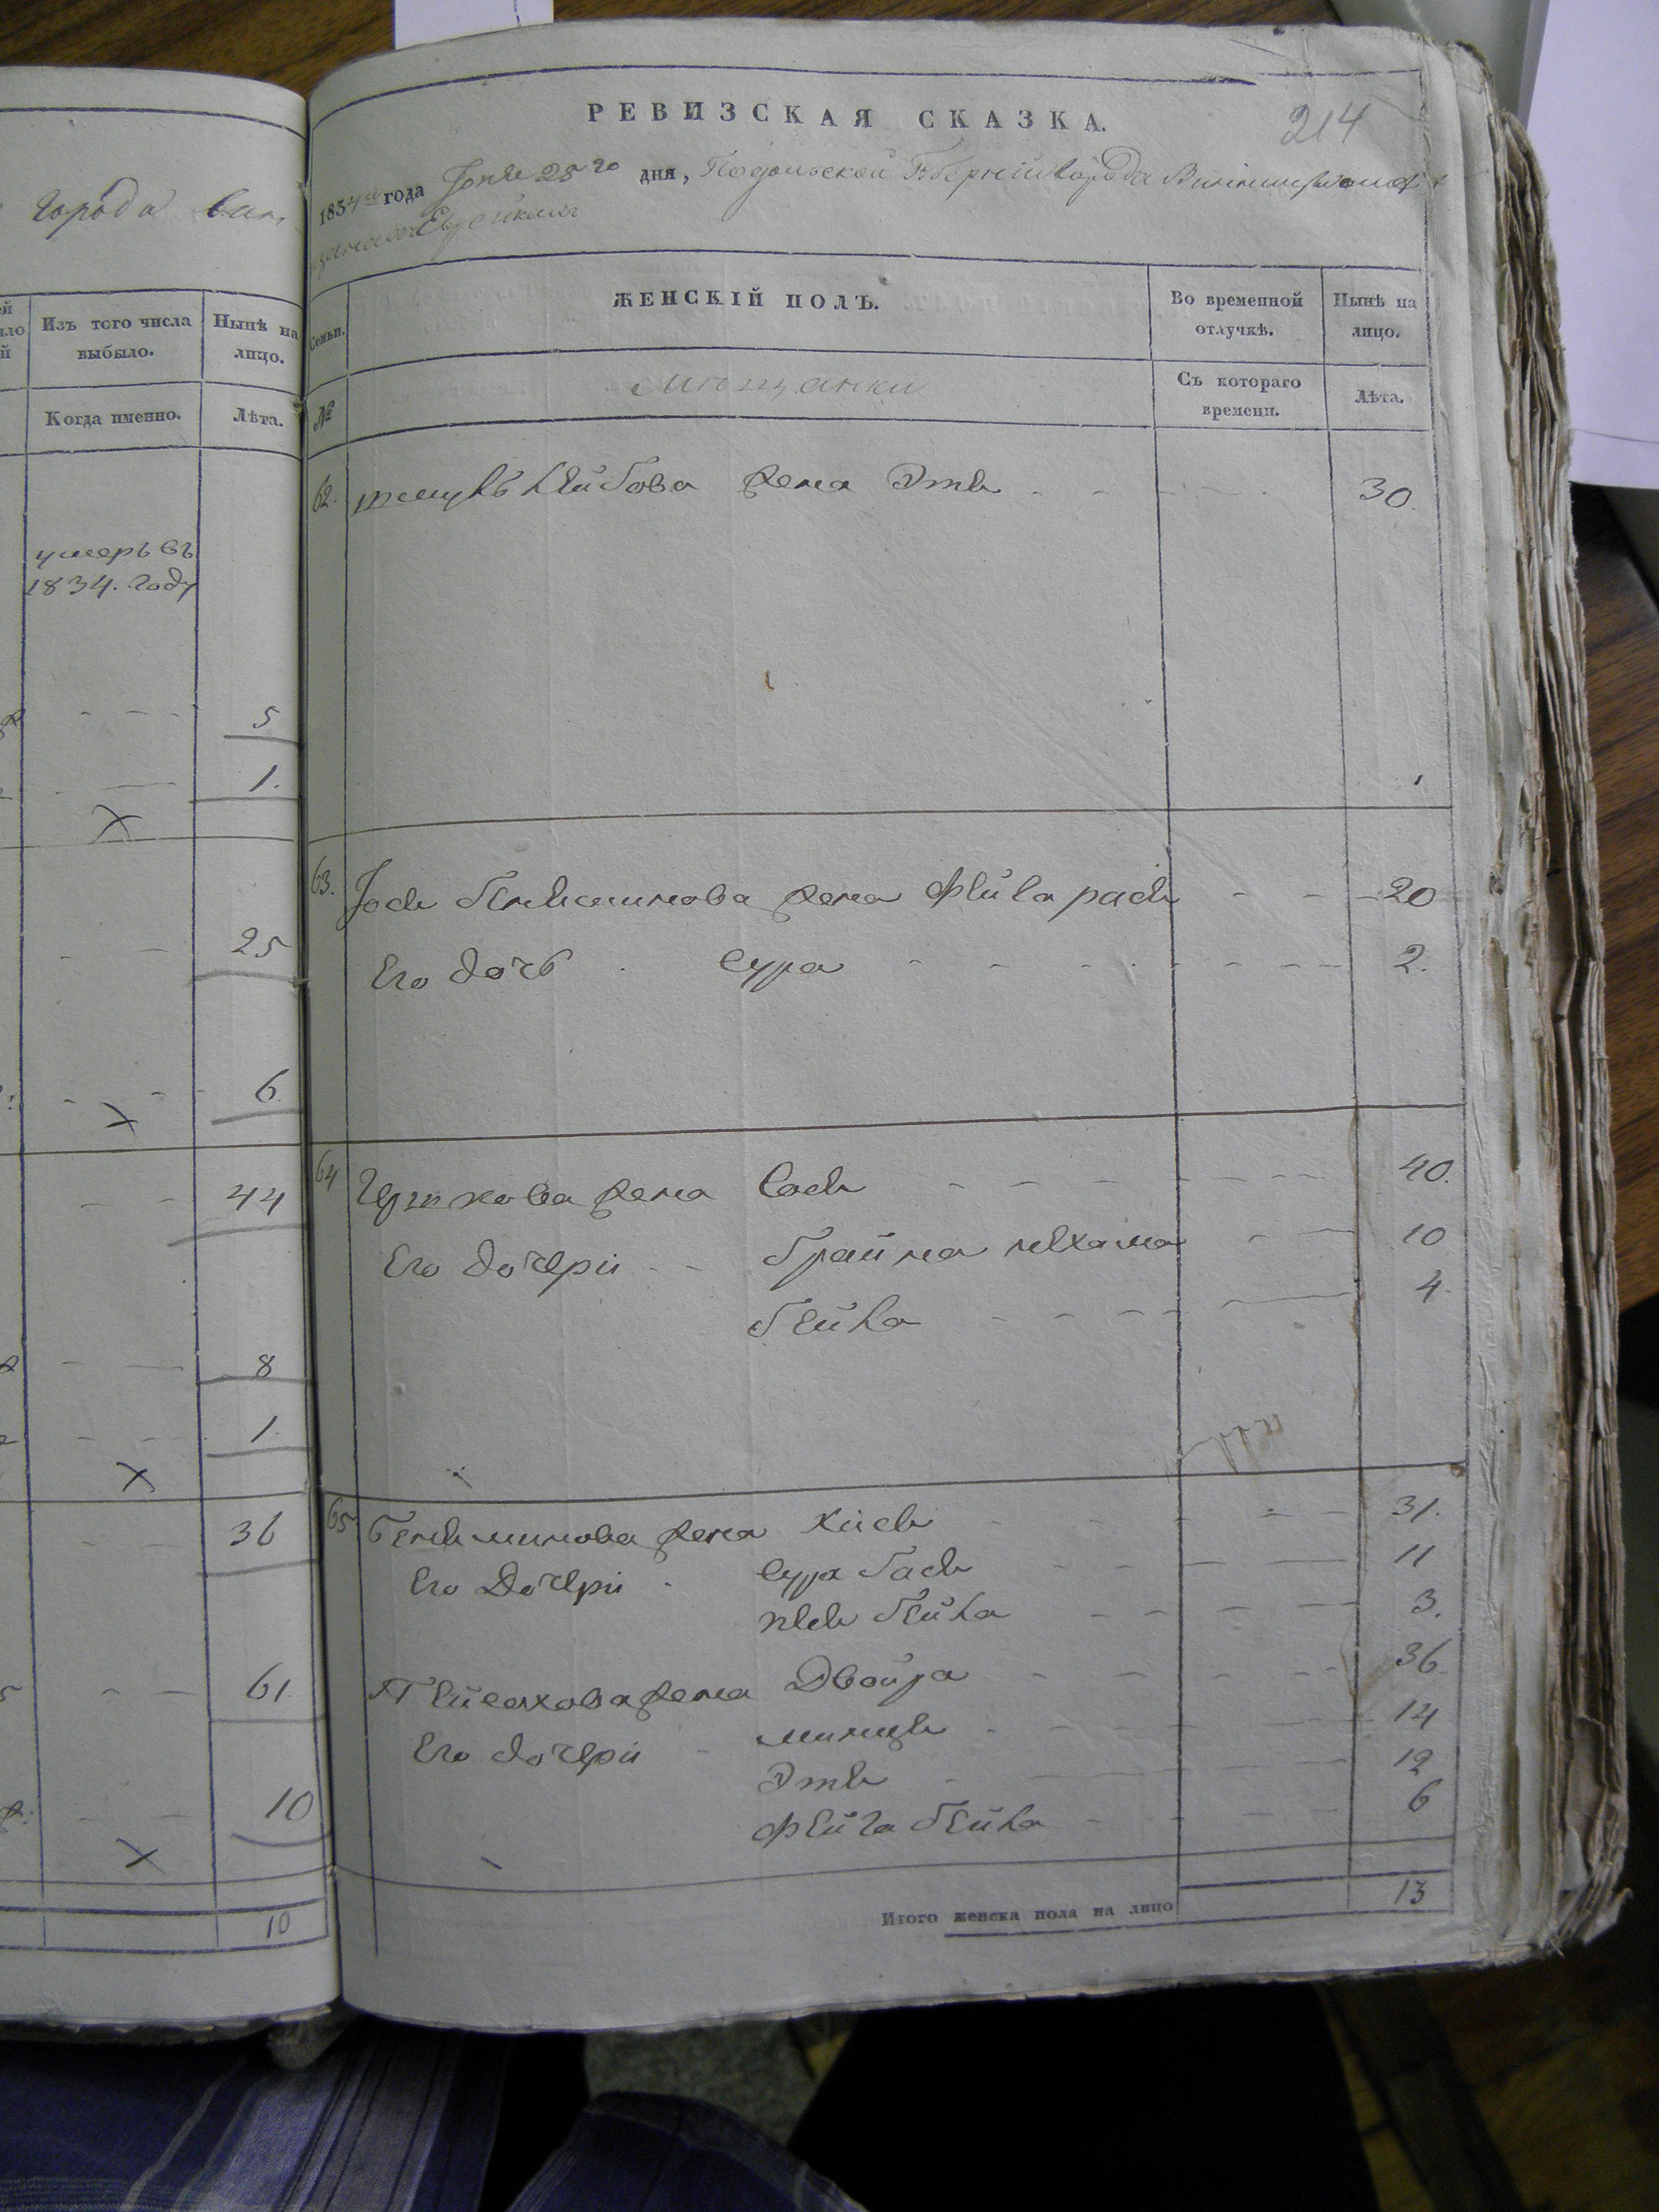 города Вин
Изъ того числа выбыло.
Нынѣ на лицо.
Когда именно.
Лѣта.
умеръ въ
1834. году
5
1.
25
6
44
8
1
36
61
10
10
РЕВИЗСКАЯ СКАЗКА.
214
1834го года Іюня 25го дня, Подольской Губерніи города
Семьи.
ЖЕНСКІЙ ПОЛЪ.
Во временной отлучкѣ.
Нынѣ на лицо.
№
Мѣщанки
Съ котораго времени.
Лѣта.
62. Лейбова жена Этя 30
63. Іося Беньяминова жена Фейга рася 20
Его дочь Сура 2.
64 Гершкова жена Сося 40.
Его дочери Брайна нехама 10
бейла 4.
65 Беньяминова жена Хися 31.
Его дочери Сура бася 11
песя бейла 3.
Пейсахова жена Двойра 36
Его дочери минця 14
Этя 12
Фейга бейла 6
Итого женска пола на лицо 13